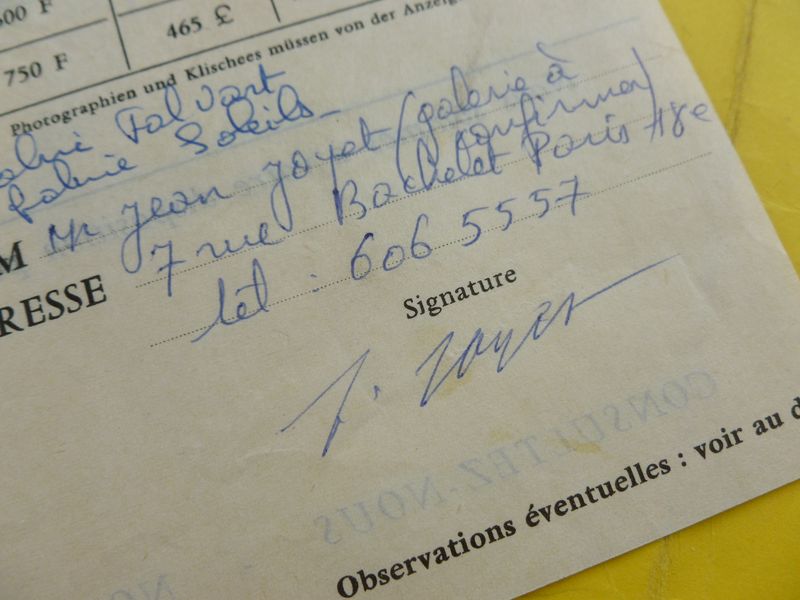 500 F
750 F
465 £
Photographien und Klischees müssen von der Anzeige
Falvart
Soleils -
M Mr Jean Joyet (galerie à
confirmer)
RESSE 7 rue Bachelet Paris 18e
tél : 606 5557
Signature
J. Joyet
CONSULTEZ-NOUS
Observations éventuelles : voir au d